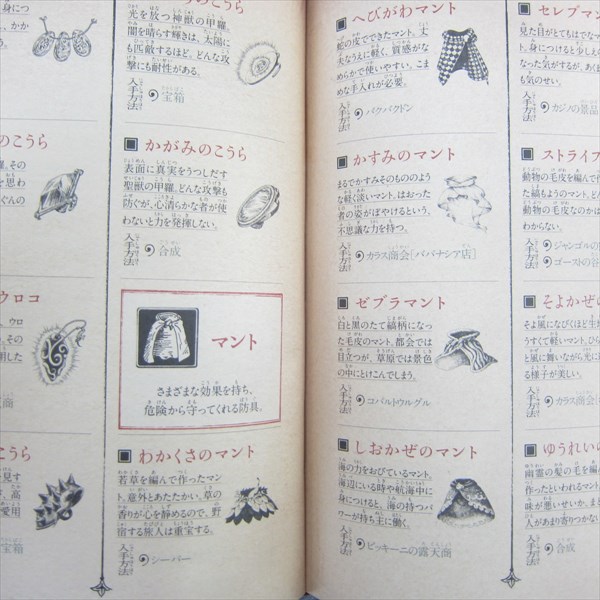 身につ
、かか
のこうら
光を放つ神獣の甲羅。
闇を晴らす輝きは、太陽に
も匹敵するほど。どんな攻
撃にも耐性がある。
入手方法
宝箱
のこうら
かがみのこうら
表面に真実をうつしだす
聖獣の甲羅。どんな攻撃も
防ぐが、心清らかな者が使
わないと力を発揮しない。
入手方法
合成
ウロコ
マント
さまざまな効果を持ち、
危険から守ってくれる防具。
こうら
わかくさのマント
若草を編んで作ったマン
ト。意外とあたたかい。草の
香りが心を静めるので、野
宿する旅人は重宝する。
入手方法
シーバー
へびがわマント
蛇の皮でできたマント。丈
夫なうえに軽く、質感がな
めらかで使いやすい。こま
めな手入れが必要。
入手方法
バクバクドン
かすみのマント
まるでかすみそのもののよう
な軽く淡いマント。はおった
者の姿がぼやけるという、
不思議な力を持つ。
入手方法
カラス商会[ババナシア店]
ゼブラマント
白と黒のたて縞柄になっ
た毛皮のマント。都会では
目立つが、草原では景色
の中にとけこんでしまう。
入手方法
コバルトウルグル
しおかぜのマント
海の力をおびているマント。
海辺にいる時や航海中に
身につけると、海の持つパ
ワーが持ち主に働く。
入手方法
ビッキーニの露天商
セレブマン
見た目がとてもはでな
ト。身につけると少しえ
なった気がするが、あく
も気のせい。
入手方法
カジノの景品
ストライプ
動物の毛皮を編んで作
た縞もようのマント。どん
動物の毛皮なのかは
わからない。
入手方法
ジャングルの
ゴーストの谷
そよかぜの
そよ風になびくほど
うすくて軽いマント。ひら
と風に舞いながら光に
る様子が美しい。
入手方法
カラス商会
ゆうれいの
幽霊の髪の毛を編ん
作ったといわれるマント
味が悪いせいか、ま
人があまり寄りつかな
入手方法
合成